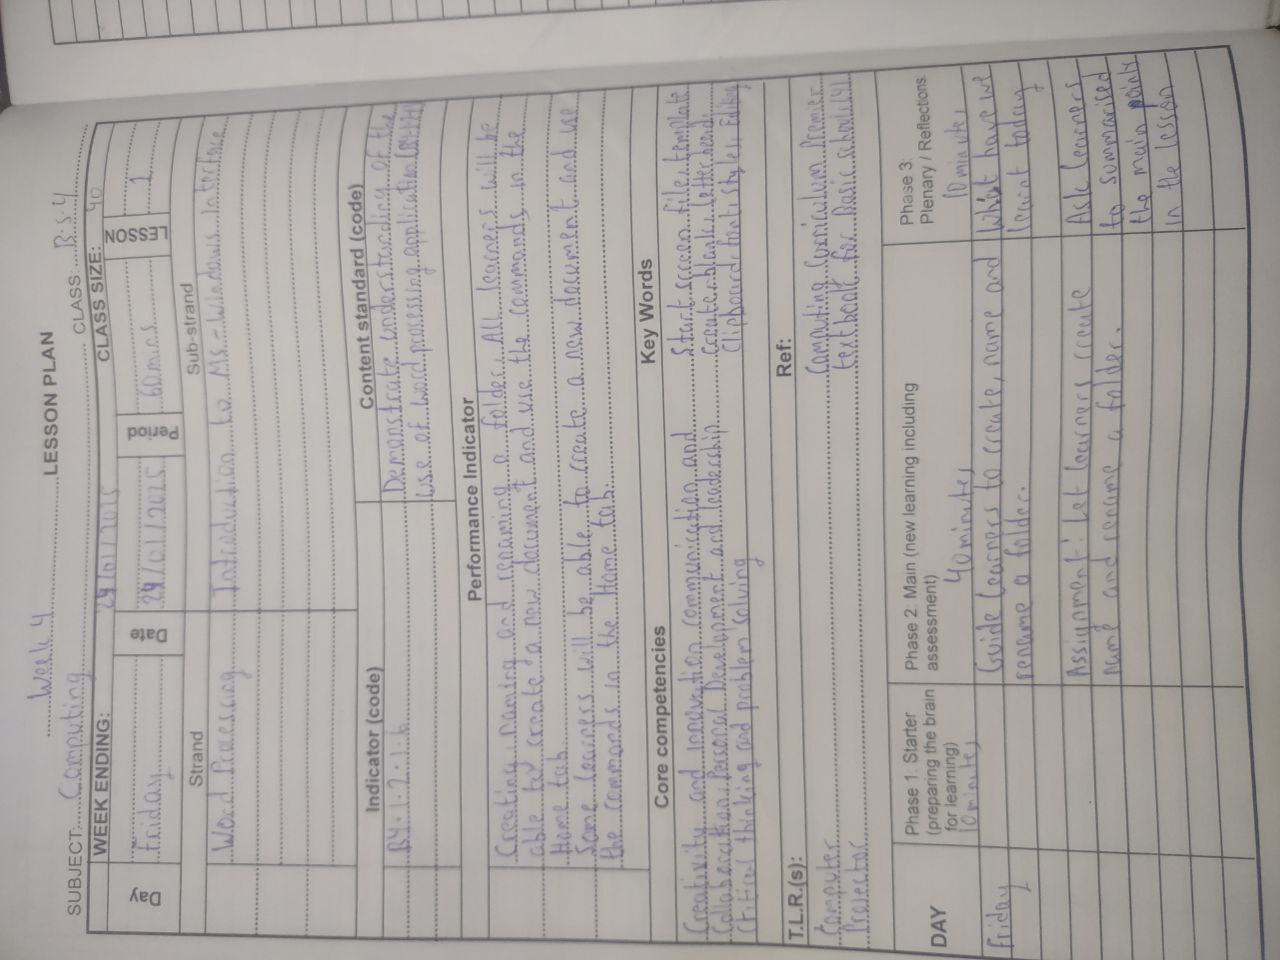 Week 4
LESSON PLAN
SUBJECT: Computing CLASS: B.S.4
WEEK ENDING: 24/01/2025 CLASS SIZE: 40
Day Friday Date 24/01/2025 Period 60mins LESSON 1
Strand Sub-strand
Word Processing Introduction to Ms-Windows Interface
Indicator (code) Content standard (code)
B4.1.2.1.6 Demonstrate understanding of the
use of word processing application
Performance Indicator
Creating, naming and renaming a folder. All learners will be
able to create a new document and use the commands in the
Home tab
Some learners will be able to create a new document and use
the commands in the Home tab.
Core competencies Key Words
Creativity and innovation communication and Start screen file, template
Collaboration Personal Development and leadership Create blank, letter head,
Critical thinking and problem solving Clipboard, font styles, Editing
T.L.R.(s): Ref:
Computer Computing Curriculum Premier
Projector textbook for Basic schools
DAY
Phase 1: Starter
(preparing the brain
for learning)
10 minutes
Phase 2: Main (new learning including
assessment)
40 minutes
Phase 3:
Plenary / Reflections
10 minutes
Friday
Guide learners to create, name and
rename a folder.
Assignment: Let learners create
name and rename a folder.
What have we
learnt today
Ask learners
to summarised
the main points
in the lesson